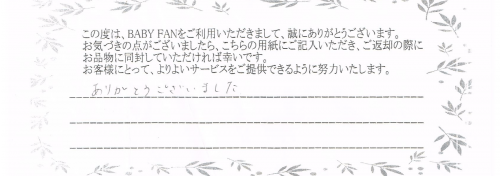 この度は、BABY FANをご利用いただきまして、誠にありがとうございます。
お気づきの点がございましたら、こちらの用紙にご記入いただき、ご返却の際に
お品物に同封していただければ幸いです。
お客様にとって、よりよいサービスをご提供できるように努力いたします。
ありがとうございました